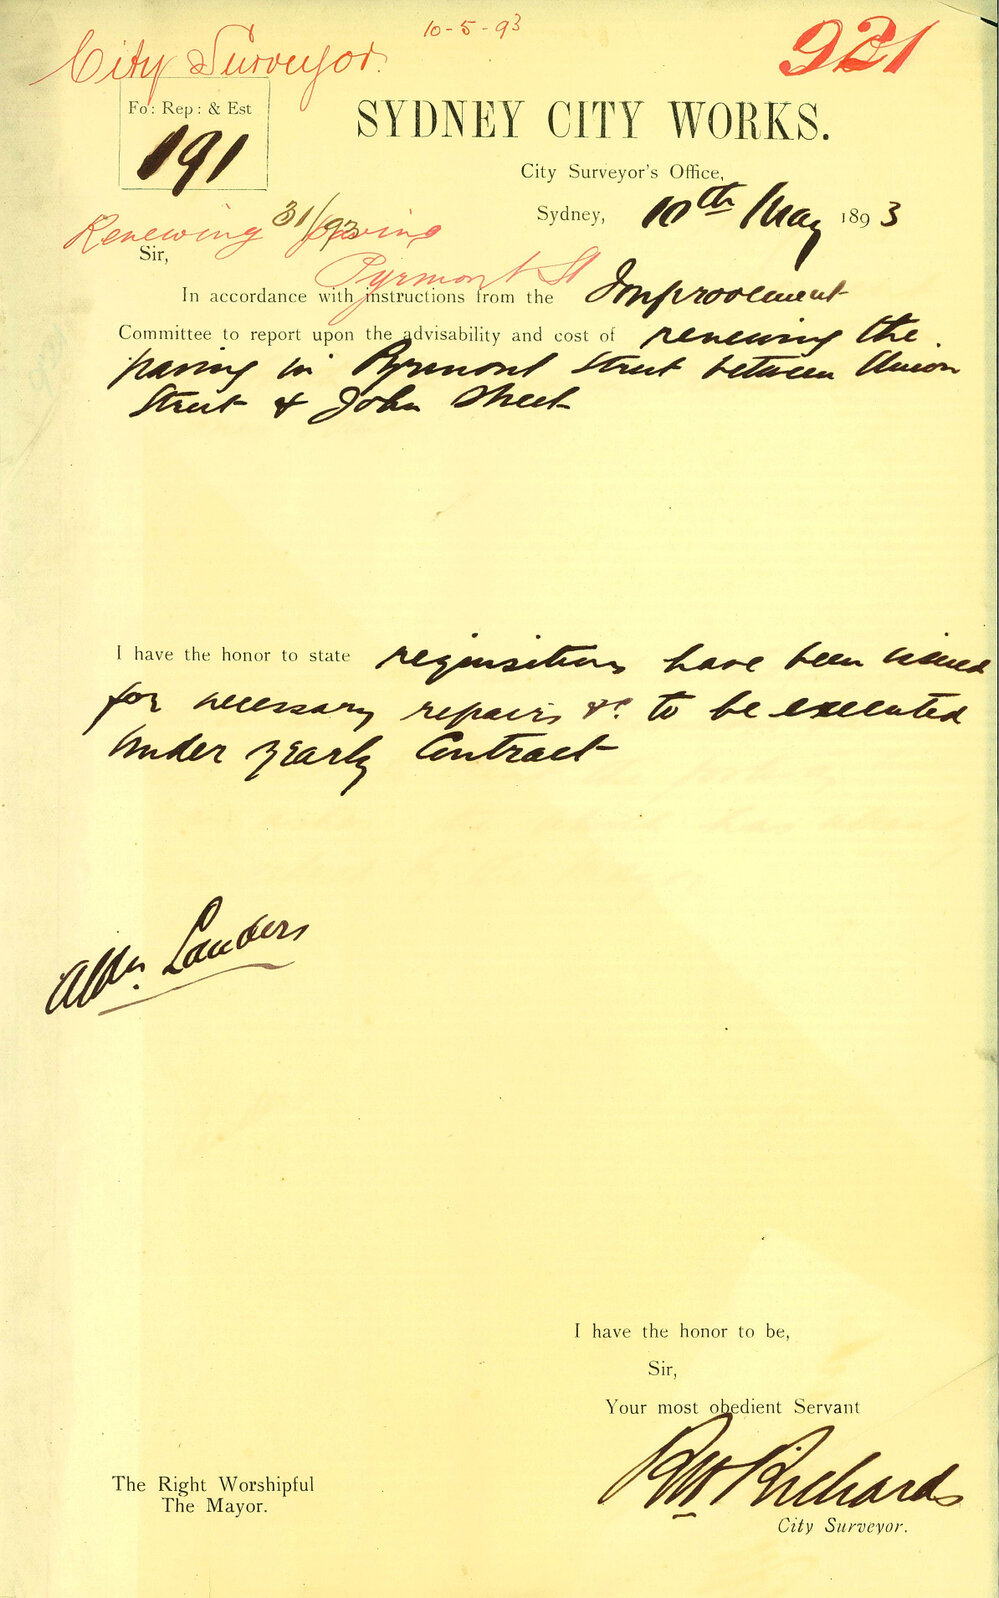 10-5-93
City Surveyor.
921
Fo: Rep: & Est
191
31/93
SYDNEY CITY WORKS.
City Surveyor's Office,
Sydney, 10th May 1893
Renewing paving
Pyrmont St
Sir,
In accordance with instructions from the Improvement
Committee to report upon the advisability and cost of renewing the
paving in Pyrmont Street between Union
Street & John Street
I have the honor to state requisitions have been issued
for necessary repairs &c. to be executed
under yearly Contract
Aldn. Landers
I have the honor to be,
Sir,
Your most obedient Servant
RW Richards
City Surveyor.
The Right Worshipful
The Mayor.